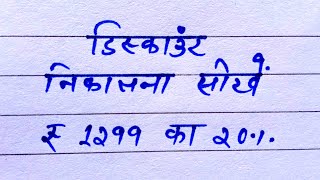 डिस्काउंट
निकालना सीखें
₹ 1299 का 20%